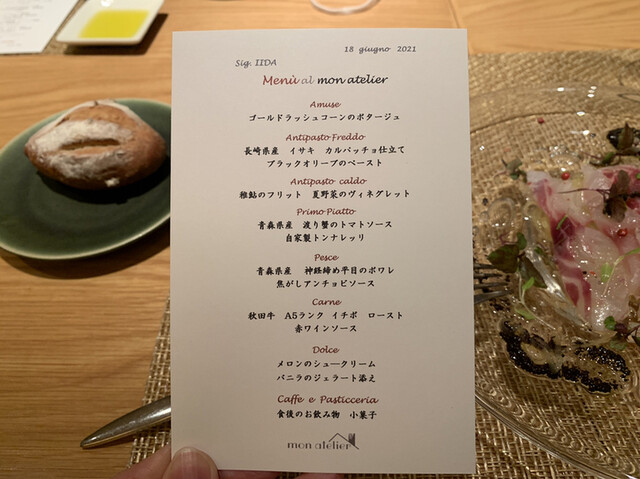 18 giugno 2021
Sig. IIDA
Menù al mon atelier
Amuse
ゴールドラッシュコーンのポタージュ
Antipasto Freddo
長崎県産 イサキ カルパッチョ仕立て
ブラックオリーブのペースト
Antipasto caldo
稚鮎のフリット 夏野菜のヴィネグレット
Primo Piatto
青森県産 渡り蟹のトマトソース
自家製トンナレッリ
Pesce
青森県産 神経締め平目のポワレ
焦がしアンチョビソース
Carne
秋田牛 A5ランク イチボ ロースト
赤ワインソース
Dolce
メロンのシュークリーム
バニラのジェラート添え
Caffe e Pasticceria
食後のお飲み物 小菓子
mon atelier